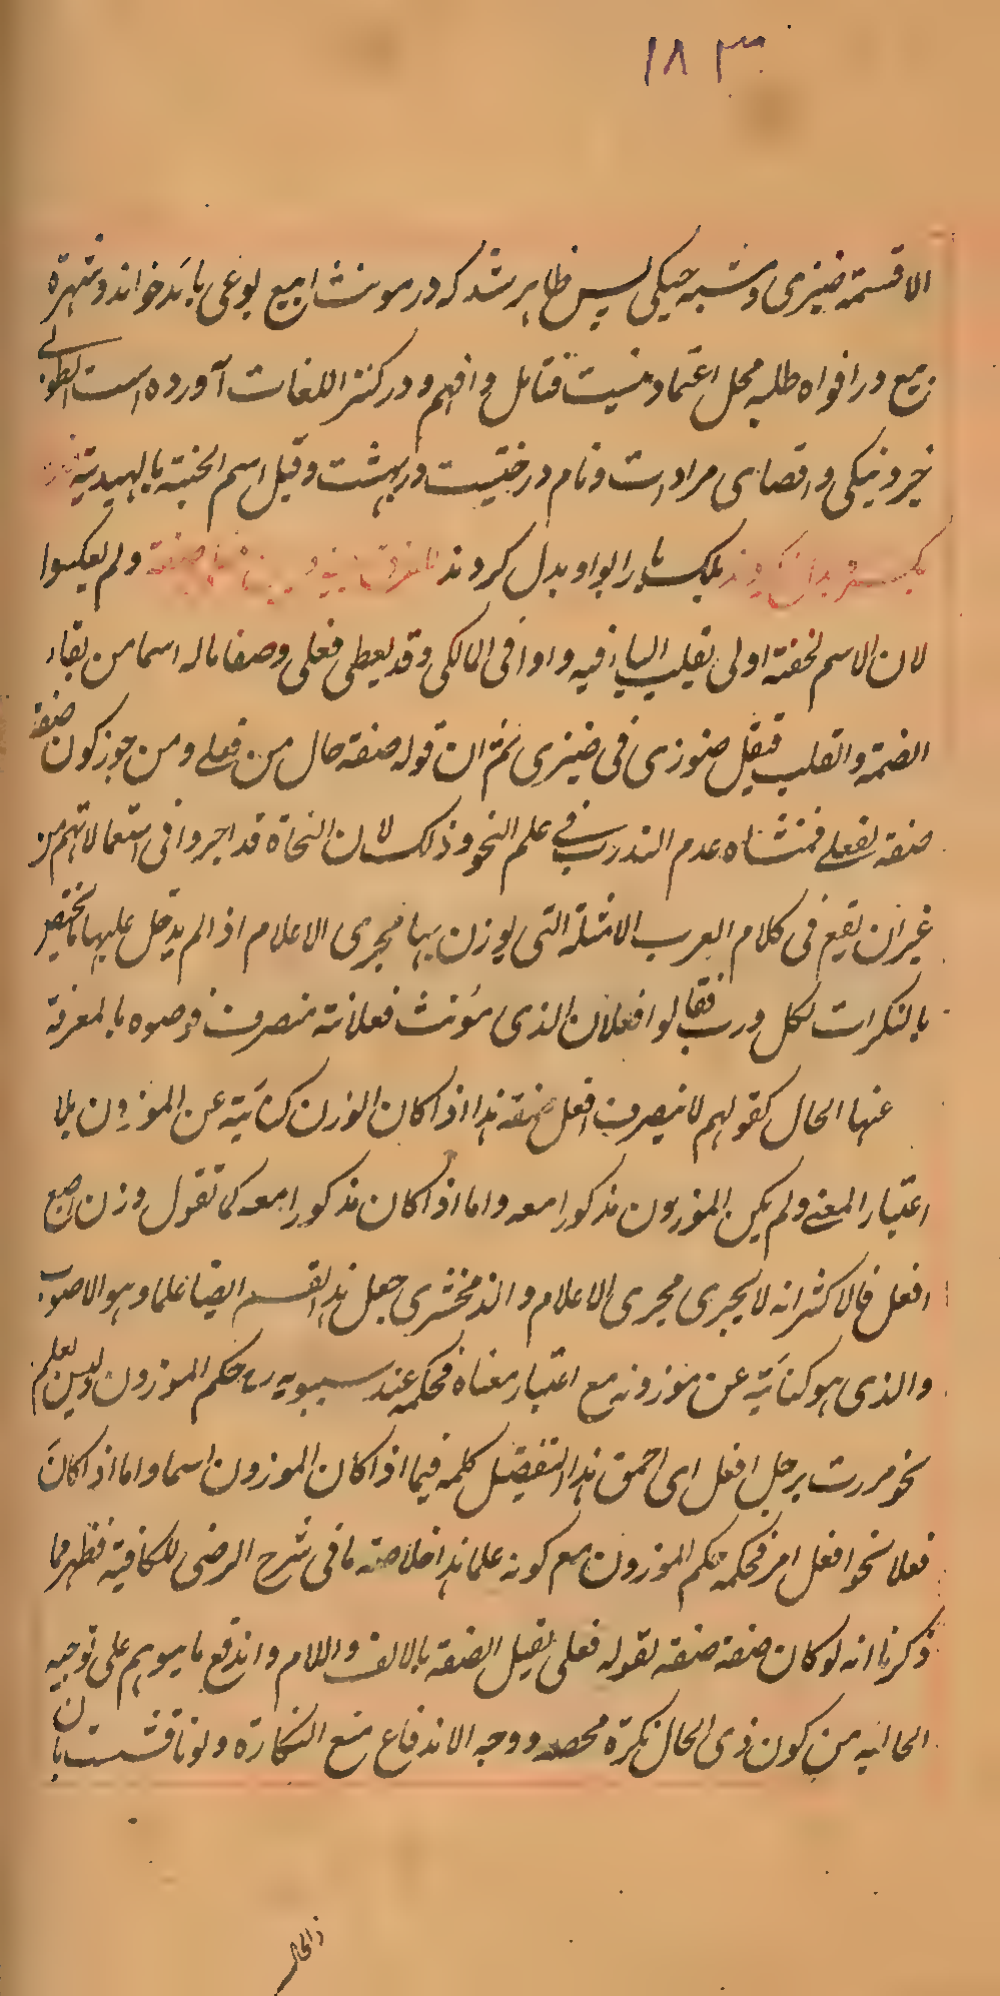 ١٨٣
الا قسمة ضیزی و مشیه حیکی پس ظاهر شد که در مونث ابیع بوعی باید خواند و شهرة
زبیع در افواه طلبه محل اعتماد نیست فتامل و افهم و در کنز اللغات آورده است الطوبی
خیر و نیکی و اقصای مراد است و نام درختیست در بهشت و قیل اسم الجنة بالهیدیة
بلکه یا را بواو بدل کردند للفرق بینه و بین صفة ولم یعکسوا
لان الاسم لخفته اولی بقلب الیاء فیه واوا فی المالکی وقد یعطی فعلی وصفا ما له اسما من بقاء
الضمة والقلب فیقل ضوزی فی ضیزی ثم ان قوله صفة حال من فعلی ومن جوز کون صفة
صفة لفعلی فمنشاه عدم التدرب فی علم النحو وذلک لان النحاة قد اجروا فی استعمالاتهم من
غیر ان یقع فی کلام العرب الامثلة التی یوزن بها مجری الاعلام اذا لم یدخل علیها ما یختص
بالنکرات ککل ورب فقالوا فعلان الذی مؤنث فعلانة منصرف فوصفوه بالمعرفة
عنها الحال کقولهم لا ینصرف افعل صفة هذا اذا کان الوزن کنایة عن الموزون بلا
اعتبار المعنی ولم یکن الموزون مذکورا معه واما اذا کان مذکورا معه کما تقول وزن اصبع
افعل فالاکثر انه لا یجری مجری الاعلام والزمخشری جعل هذا القسم ایضا علما وهو الاصوب
والذی هو کنایة عن موزونه مع اعتبار معناه فحکمه عند سیبویه رح حکم الموزون ولیس بعلم
نحو مررت برجل افعل ای احمق هذا التفصیل کلمه فیما اذا کان الموزون اسما واما اذا کان
فعلا نحو افعل امر فحکمه حکم الموزون مع کونه علما هذا خلاصة ما فی شرح الرضی للکافیة فظهر مما
ذکرنا انه لو کان صفة صفة لقوله فعلی لقیل الصفة بالالف واللام واندفع ما یتوهم علی توجیه
الحالیه من کون ذی الحال نکرة محصه ووجه الاندفاع منع النکارة ولو ناقشت بان
ذا الحال